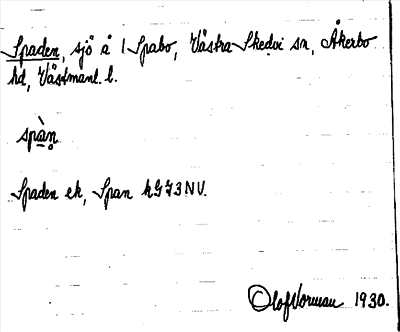 Spaden, sjö å 1 Spabo, Västra Skedvi sn, Åkerbo
hd, Västmanl. l.
spàn
Spaden ek, Span hGJ3NV.
Olof Norman 1930.